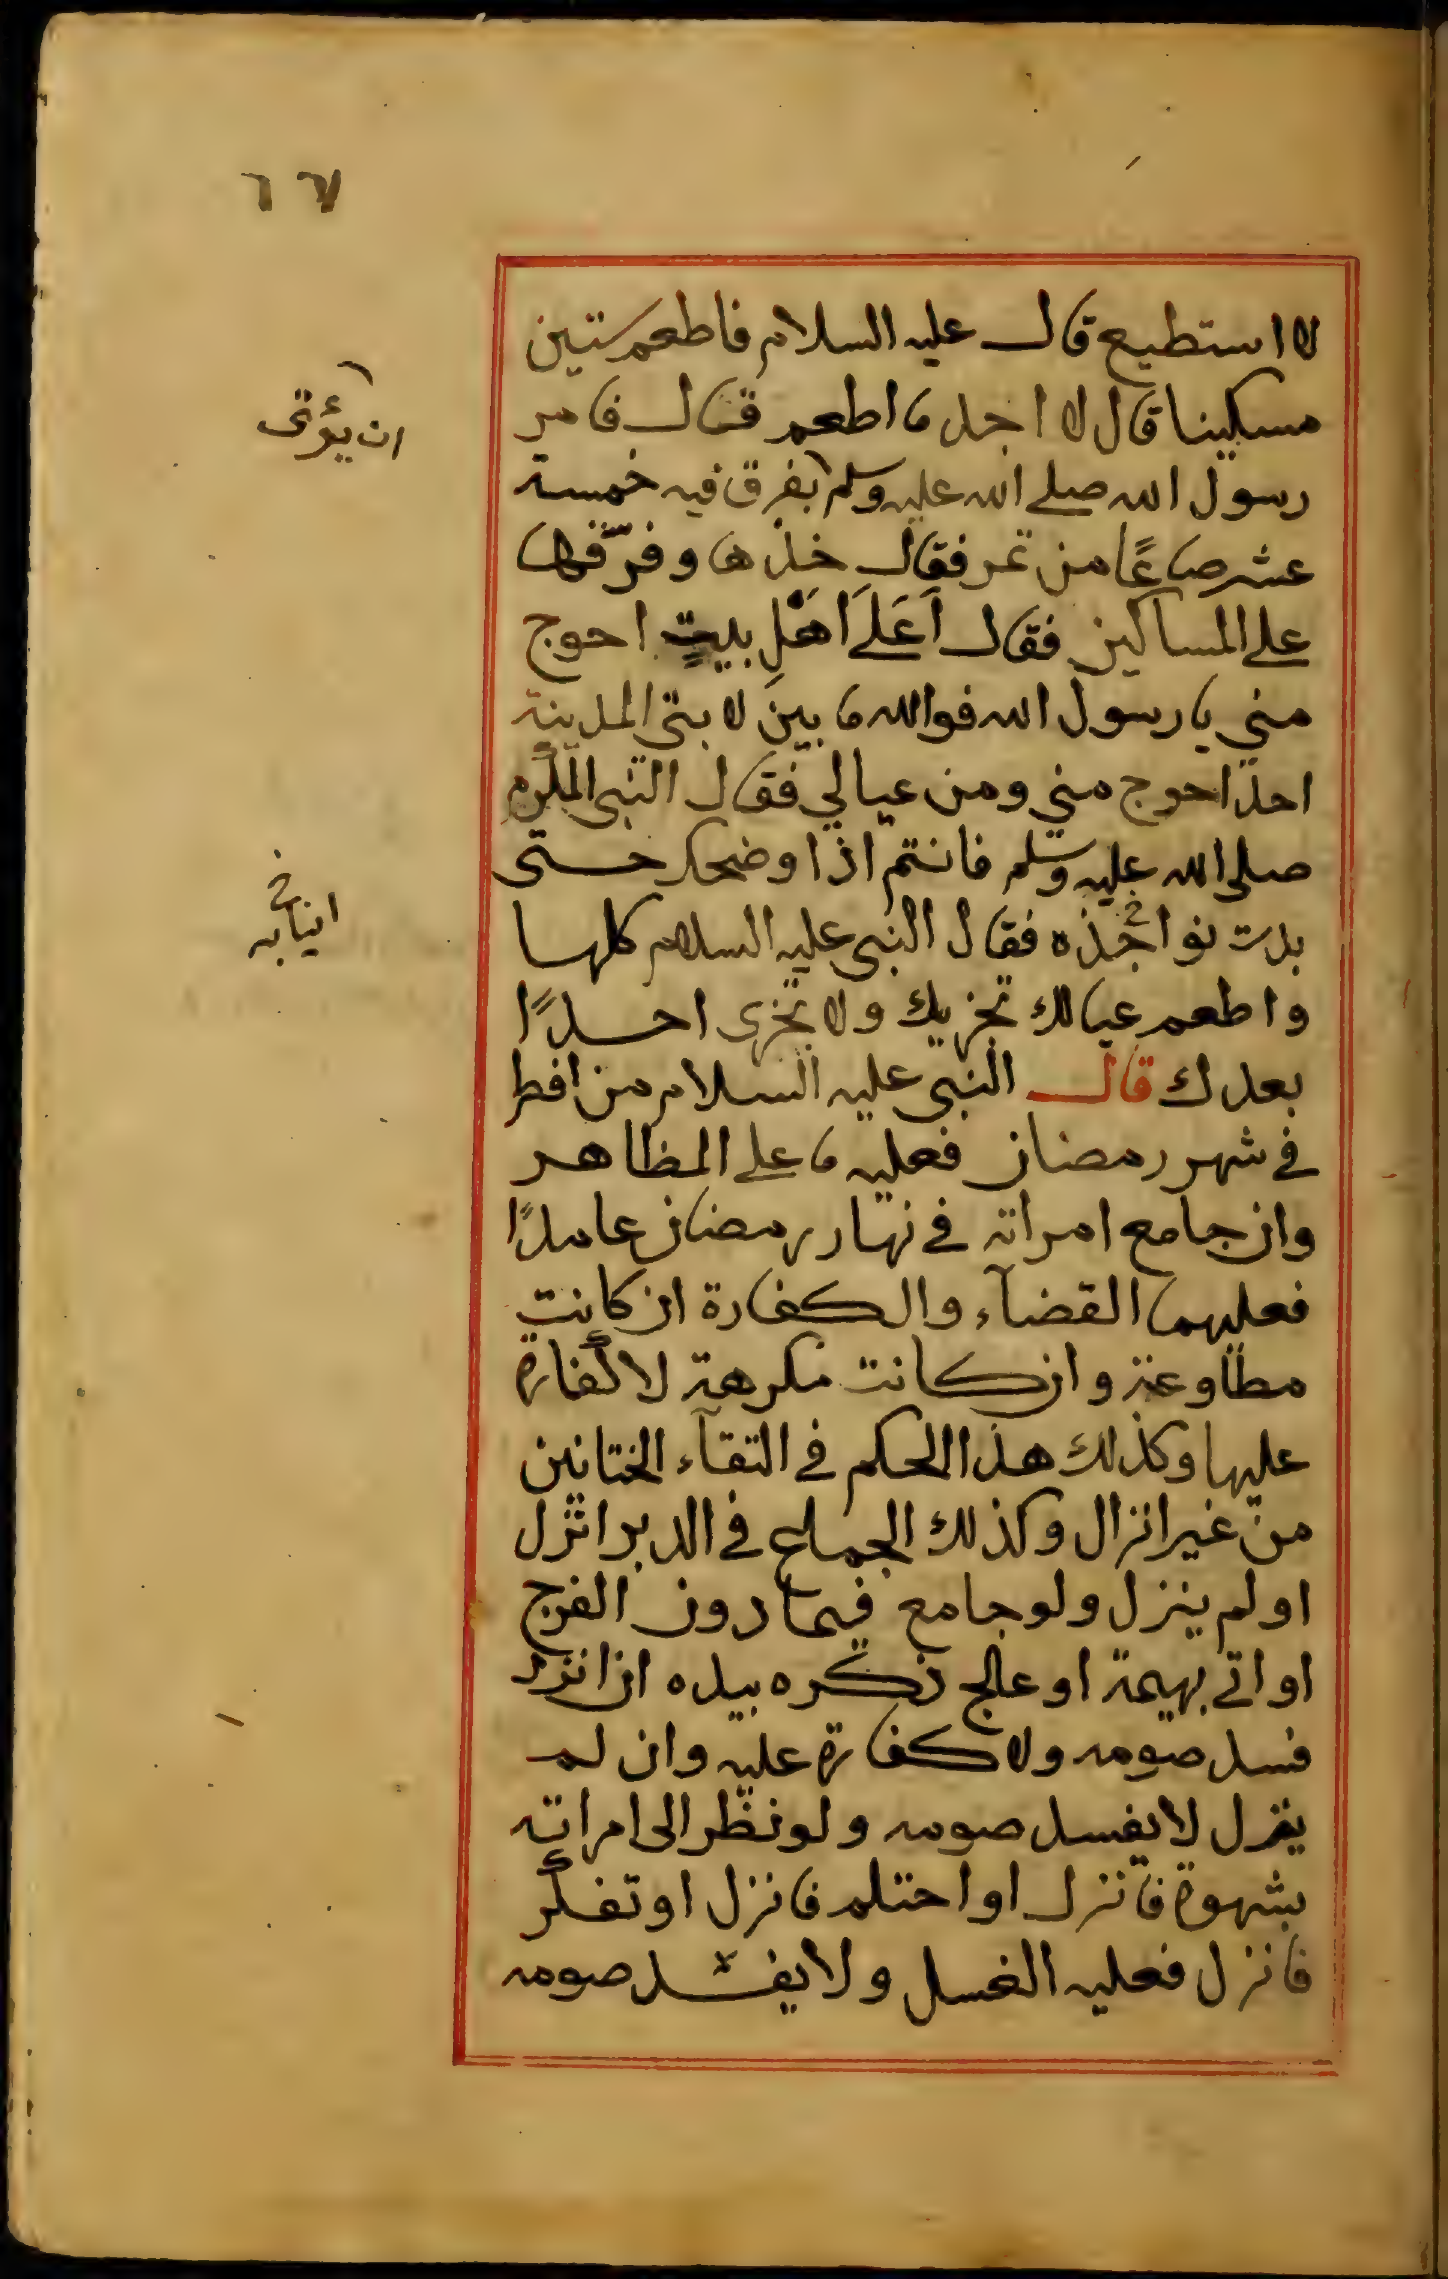 ٦٧
لا استطيع قال عليه السلام فاطعم ستين
مسكينا قال لا اجد ما اطعم قال فامر
ان يؤتى
رسول الله صلى الله عليه وسلم بفرق فيه خمسة
عشر صاعًا من تمر فقال خذها وفرّقها
على المساكين فقال أَعَلَى اَهْلِ بيتٍ احوج
مني يا رسول الله فوالله ما بين لابتى المدينة
احدا احوج مني ومن عيالي فقال النبى المكرم
صلى الله عليه وسلم فانتم اذا وضحك حتى
بدت نواجذه فقال النبى عليه السلام كلها
انيابه
واطعم عيالك تجزيك ولا تجزى احدًا
بعدك قال النبى عليه السلام من افطر
فى شهر رمضان فعليه ما على المظاهر
وان جامع امراته فى نهار رمضان عامدًا
فعليهما القضآء والكفارة ان كانت
مطاوعة وان كانت مكرهة لا كفارة
عليها وكذلك هذا الحكم فى التقآء الختانين
من غير انزال وكذلك الجماع فى الدبر انزل
او لم ينزل ولو جامع فيما دون الفرج
او اتى بهيمة او عالج ذكره بيده ان انزل
فسد صومه ولا كفارة عليه وان لم
ينزل لا يفسد صومه ولو نظر الى امراته
بشهوة فانزل او احتلم فانزل او تفكّر
فانزل فعليه الغسل ولا يفسد صومه